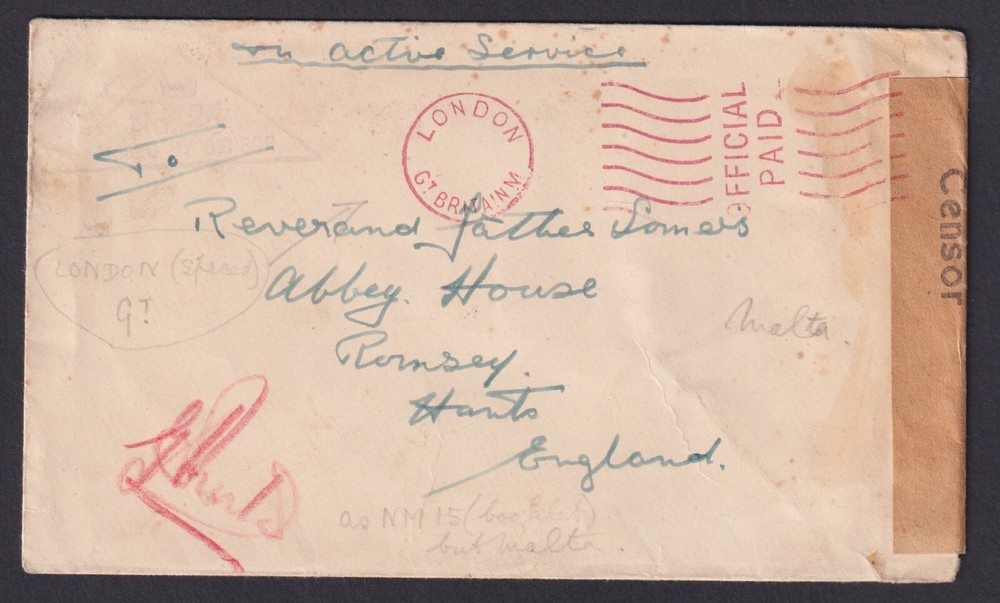 on active Service
LONDON
GT BRITAIN NM
OFFICIAL
PAID
To
Reverand Father Somers
Abbey. House
Romsey.
Hants
England.
Censor
LONDON (spaced)
GT
Malta.
as NM 15 (booklet)
but Malta.